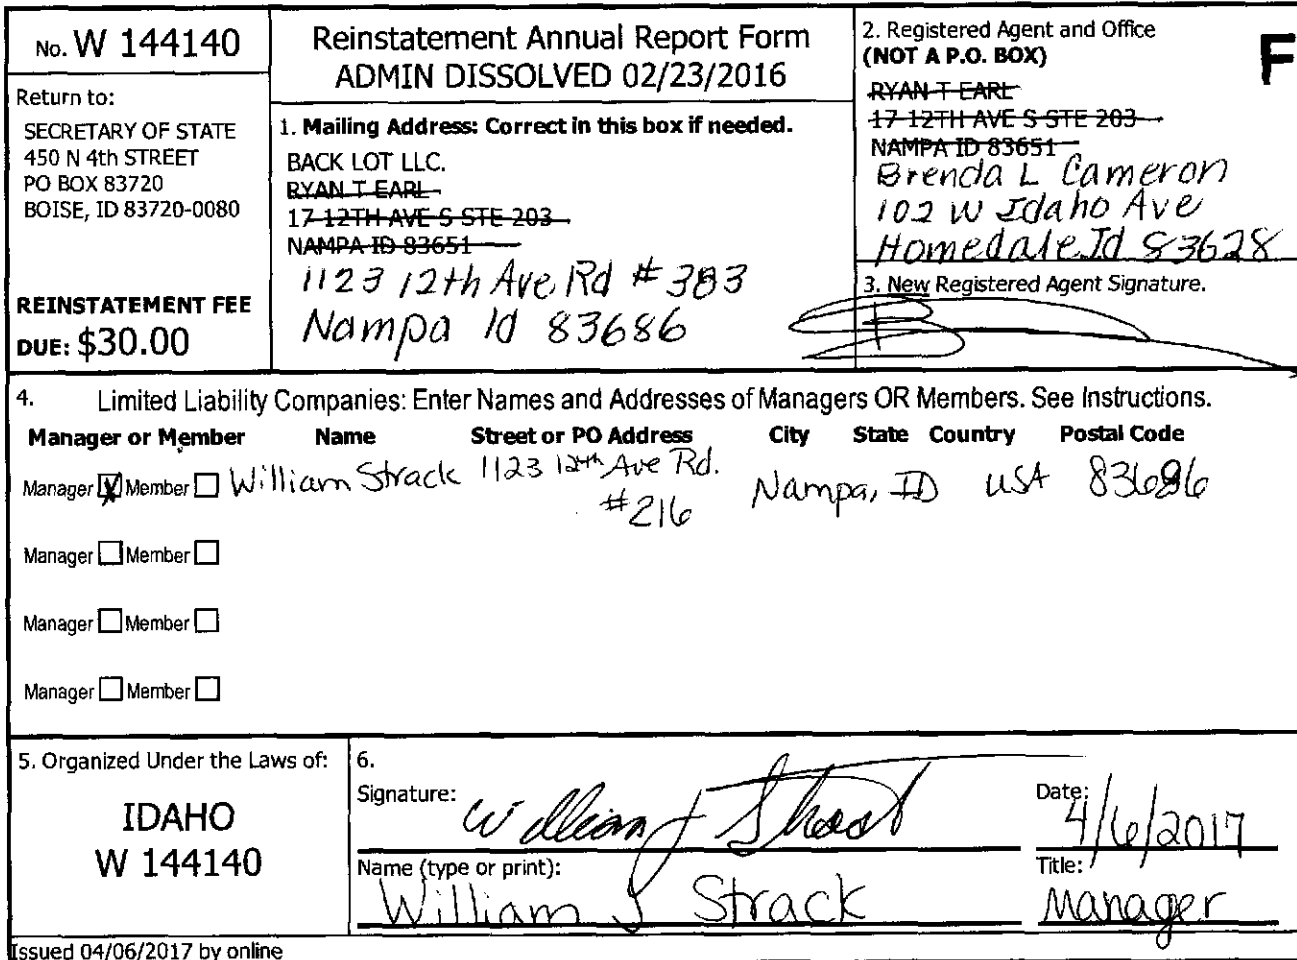 No. W 144140
Return to:
SECRETARY OF STATE
450 N 4th STREET
PO BOX 83720
BOISE, ID 83720-0080
REINSTATEMENT FEE
DUE: $30.00
Reinstatement Annual Report Form
ADMIN DISSOLVED 02/23/2016
1. Mailing Address: Correct in this box if needed.
BACK LOT LLC.
RYAN T EARL
17 12TH AVE S STE 203
NAMPA ID 83651
1123 12th Ave Rd # 383
Nampa Id 83686
2. Registered Agent and Office
(NOT A P.O. BOX)
F
RYAN T EARL
17 12TH AVE S STE 203
NAMPA ID 83651
Brenda L Cameron
102 W Idaho Ave
Homedale Id 83628
3. New Registered Agent Signature.
4. Limited Liability Companies: Enter Names and Addresses of Managers OR Members. See Instructions.
Manager or Member Name Street or PO Address City State Country Postal Code
Manager Member William Strack 1123 12th Ave Rd. Nampa, ID USA 83686
#216
Manager Member
Manager Member
Manager Member
5. Organized Under the Laws of:
IDAHO
W 144140
6.
Signature: William J Strack
Date: 4/6/2017
Name (type or print): William J Strack
Title: Manager
Issued 04/06/2017 by online